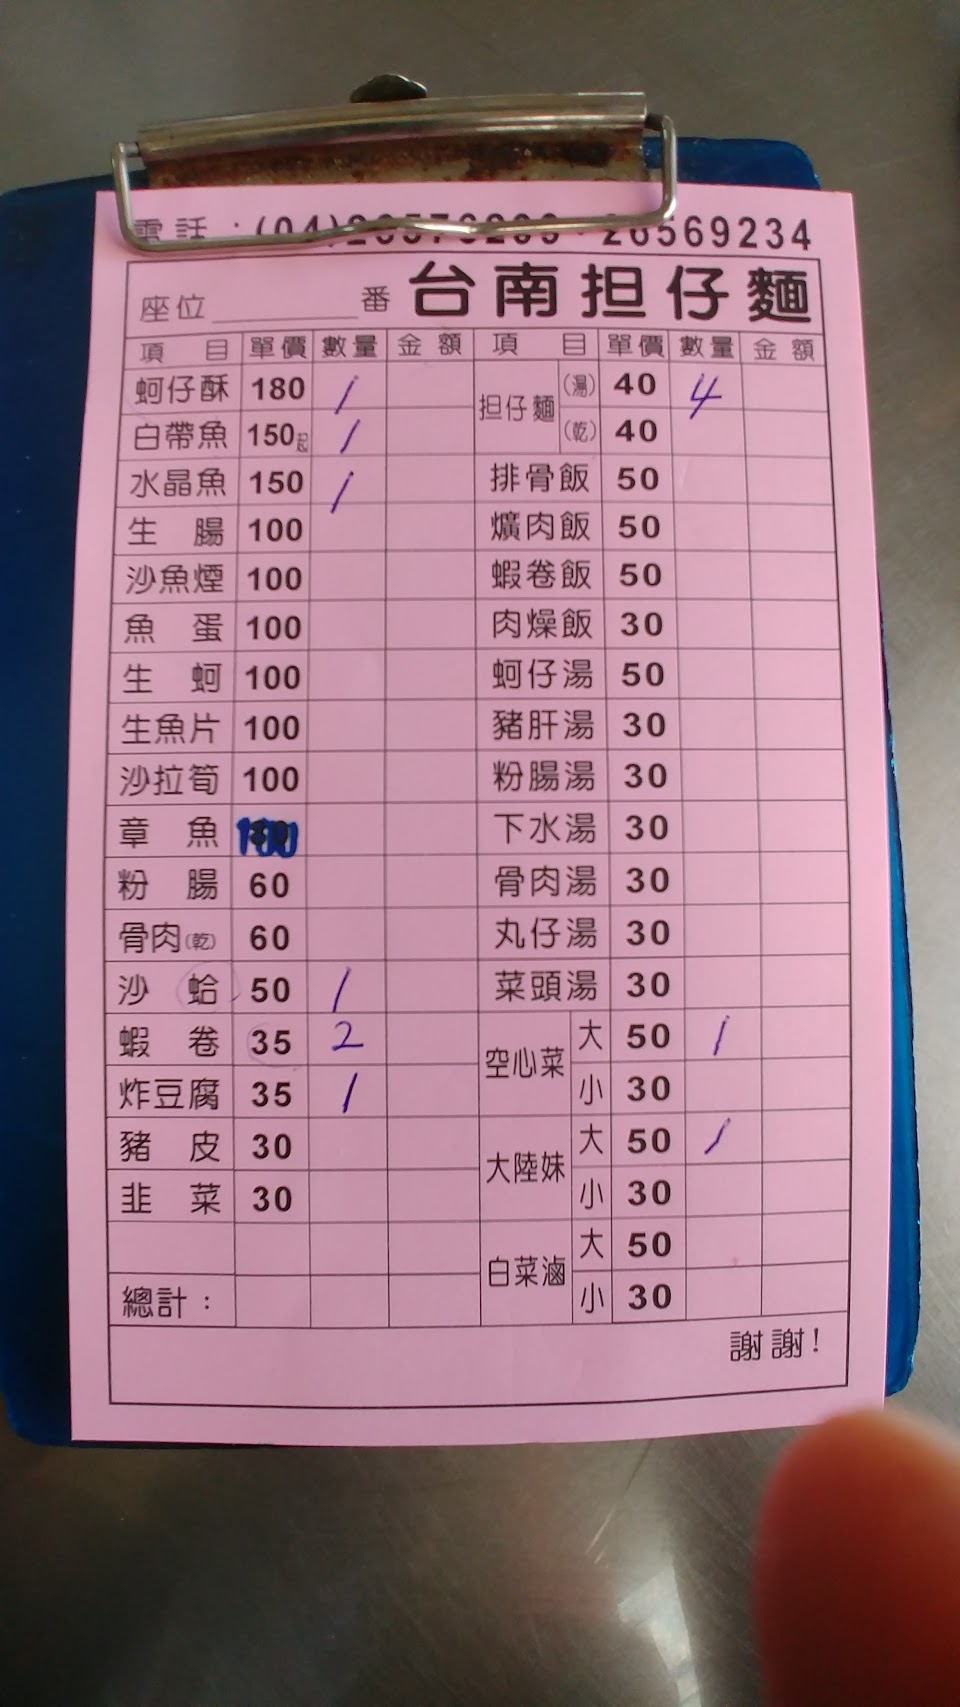 電話：(04)26576299．26569234
座位 番 台南担仔麵
項目 單價 數量 金額 項目 單價 數量 金額
蚵仔酥 180 1 担仔麵 (湯) 40 4
白帶魚 150起 1 (乾) 40
水晶魚 150 1 排骨飯 50
生腸 100 爌肉飯 50
沙魚煙 100 蝦卷飯 50
魚蛋 100 肉燥飯 30
生蚵 100 蚵仔湯 50
生魚片 100 豬肝湯 30
沙拉筍 100 粉腸湯 30
章魚 100 下水湯 30
粉腸 60 骨肉湯 30
骨肉(乾) 60 丸仔湯 30
沙蛤 50 1 菜頭湯 30
蝦卷 35 2 空心菜 大 50 1
炸豆腐 35 1 小 30
豬皮 30 大陸妹 大 50 1
韭菜 30 小 30
白菜滷 大 50
總計： 小 30
謝謝!